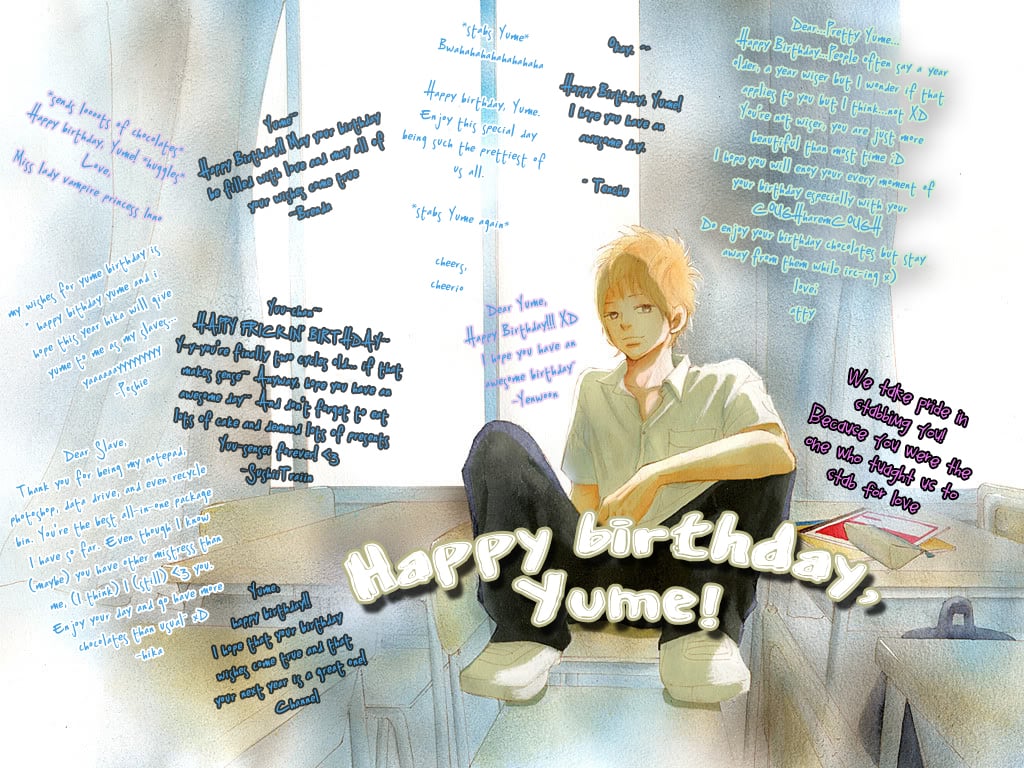 *sends looots of chocolates*
Happy birthday, Yume! *huggles*
Love,
Miss lady vampire princess Inna
Yume~
Happy Birthday!! May your birthday
be filled with love and may all of
your wishes come true
~Brenda
*stabs Yume*
Bwahahahahahahahaha
Happy birthday, Yume.
Enjoy this special day
being such the prettiest of
us all.
*stabs Yume again*
cheers,
cheerio
Okay. ~
Happy Birthday, Yume!
I hope you have an
awesome day.
- Tenchu
Dear...Pretty Yume...
Happy Birthday...People often say a year
older, a year wiser but I wonder if that
applies to you but I think...not XD
You're not wiser, you are just more
beautiful than most time :D
I hope you will enoy your every moment of
your birthday especially with your
COUGHharemCOUGH
Do enjoy your birthday chocolates but stay
away from them while irc-ing x)
love;
-tty
my wishes for yume birthday is
" happy birthday yume and i
hope this year hika will give
yume to me as my slaves~~
yaaaaayyyyyyyy
-Poshie
You-chan~~
HAPPY FRICKIN' BIRTHDAY~
Y-y-you're finally two cycles old... if that
makes sense~ Anyway, hope you have an
awesome day~ And don't forget to eat
lots of cake and demand lots of presents
Yuu-sensei forever! <3
~SushiiTraiin
Dear Yume,
Happy Birthday!!! XD
I hope you have an
awesome birthday~
-Yenwoon
We take pride in
stabbimg You!
Because you were the
one who tuught us to
stab for love
Dear Slave,
Thank you for being my notepad,
photoshop, data drive, and even recycle
bin. You're the best all-in-one package
I have so far. Even though I know
(maybe) you have other mistress than
me, (I think) I (still) <3 you.
Enjoy your day and go have more
chocolates than usual~ xD
-hika
Yume,
happy birthday!!
I hope that your birthday
wishes come true and that
your next year is a great one!
Channel
Happy birthday,
Yume!